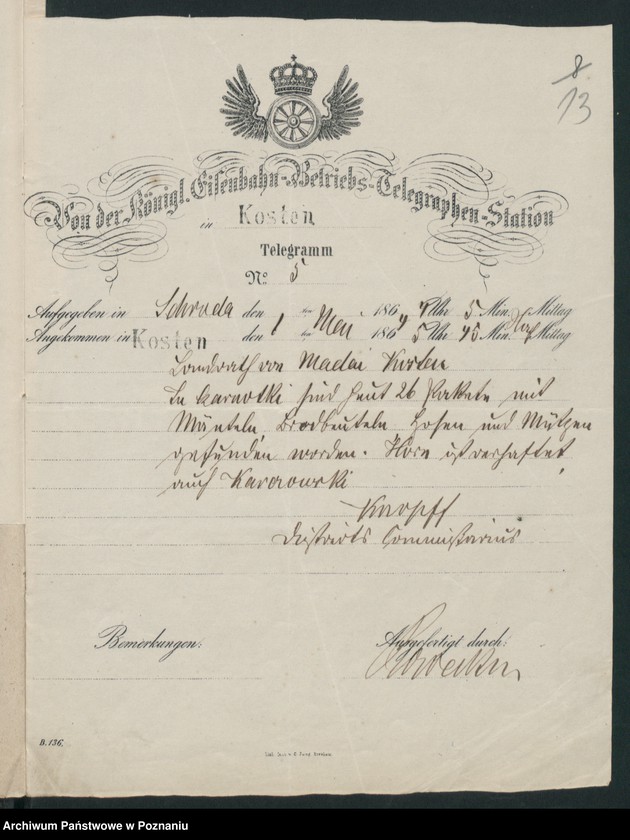 8
13
Von der Königl. Eisenbahn-Betriebs-Telegraphen-Station
in Kosten
Telegramm
No 5
Aufgegeben in Schroda den 1 ten Mai 186 4 Uhr 5 Min. Mittag
Angekommen in Kosten den ten 1864 5 Uhr 45 Min. Mittag
Landrath von Madai Kosten
In sind heut 26 Pakete mit
Mänteln Brodbeuteln Hosen und Mützen
gefunden worden. Horn ist verhaftet
auch Karczowski
Knopff
Districts Commissarius
Bemerkungen:
Ausgefertigt durch:
B. 136.
Archiwum Państwowe w Poznaniu